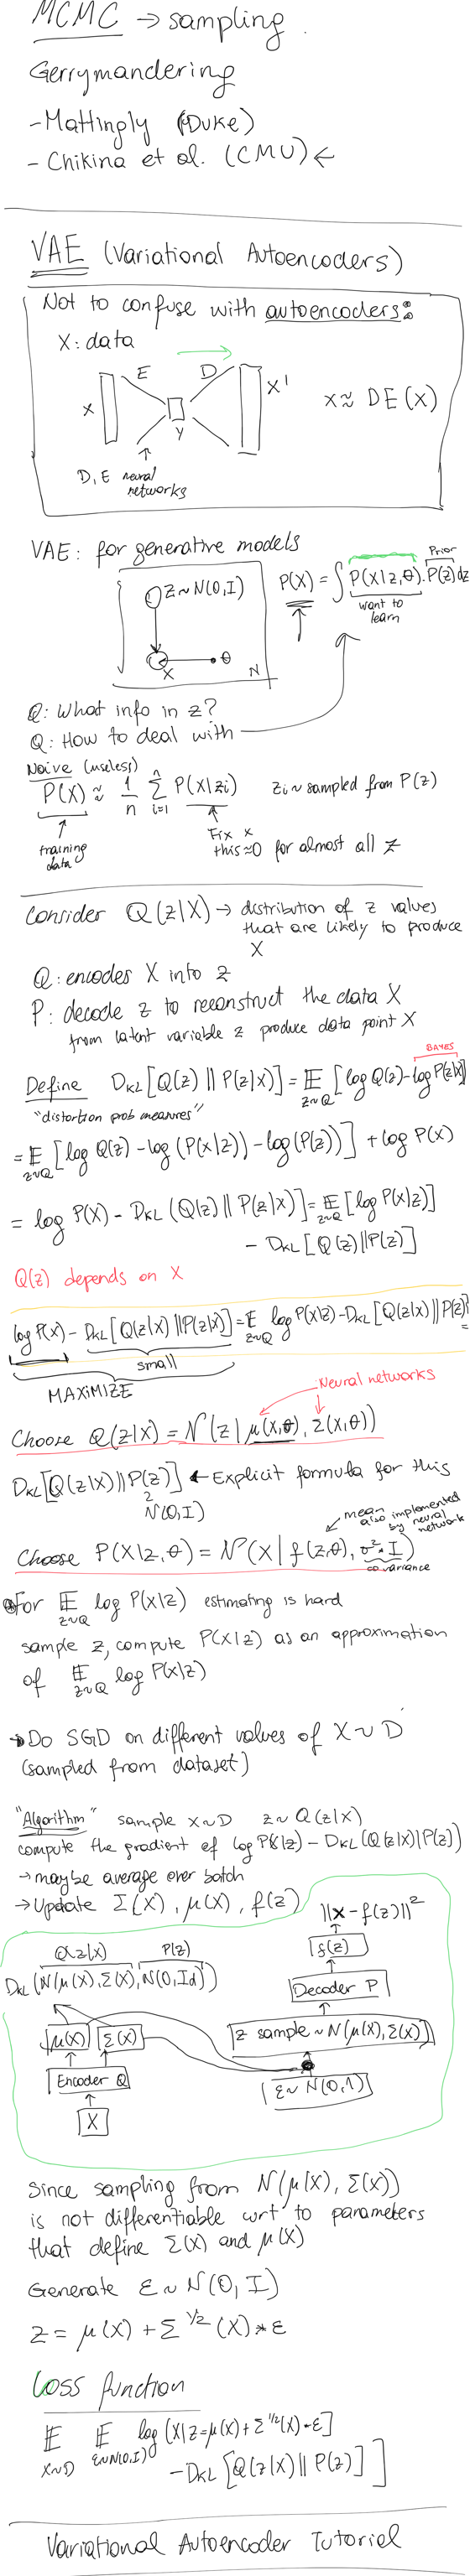 MCMC → sampling.
Gerrymandering
- Mattingly (Duke)
- Chikina et al. (CMU) ←
VAE (Variational Autoencoders)
Not to confuse with autoencoders:
X: data
E D
X y X'
X ≈ DE(X)
D, E neural
networks
VAE: for generative models
z ~ N(0,I)
X θ N
P(X) = ∫ P(X|z,θ) · P(z) dz
Prior
want to
learn
Q: What info in z?
Q: How to deal with
Naive (useless)
P(X) ≈ 1/n Σ_{i=1}^{n} P(X|zi) zi ~ sampled from P(z)
training
data
Fix x
this ≈ 0 for almost all z
Consider Q(z|X) → distribution of z values
that are likely to produce
X
Q: encodes X into z
P: decode z to reconstruct the data X
from latent variable z produce data point X
BAYES
Define D_KL[Q(z) || P(z|X)] = E_{z~Q} [log Q(z) - log P(z|X)]
"distortion prob measures"
= E_{z~Q} [log Q(z) - log(P(X|z)) - log(P(z))] + log P(X)
= log P(X) - D_KL(Q(z) || P(z|X)] = E_{z~Q} [log P(X|z)]
- D_KL[Q(z) || P(z)]
Q(z) depends on X
log P(X) - D_KL[Q(z|X) || P(z|X)] = E_{z~Q} log P(X|z) - D_KL[Q(z|X) || P(z)]
small
MAXIMIZE
Neural networks
Choose Q(z|X) = N(z | μ(X,θ), Σ(X,θ))
D_KL[Q(z|X) || P(z)] ← Explicit formula for this
N(0,I)
mean
also implemented
by neural
network
Choose P(X|z,θ) = N(X | f(z,θ), σ² * I)
covariance
For E_{z~Q} log P(X|z) estimating is hard
sample z, compute P(X|z) as an approximation
of E_{z~Q} log P(X|z)
→ Do SGD on different values of X ~ D
(sampled from dataset)
"Algorithm" sample X ~ D z ~ Q(z|X)
compute the gradient of log P(X|z) - D_KL(Q(z|X) | P(z))
→ maybe average over batch
→ Update Σ(X), μ(X), f(z)
||X - f(z)||²
Q(z|X) P(z)
f(z)
D_KL(N(μ(X), Σ(X), N(0,Id))
Decoder P
μ(X) Σ(X)
z sample ~ N(μ(X), Σ(X))
Encoder Q
ε ~ N(0,1)
X
Since sampling from N(μ(X), Σ(X))
is not differentiable wrt to parameters
that define Σ(X) and μ(X)
Generate ε ~ N(0, I)
z = μ(X) + Σ^{1/2}(X) * ε
Loss function
E_{X~D} E_{ε~N(0,I)} log(X|z = μ(X) + Σ^{1/2}(X) * ε]
- D_KL[Q(z|X) || P(z)]]
Variational Autoencoder Tutorial